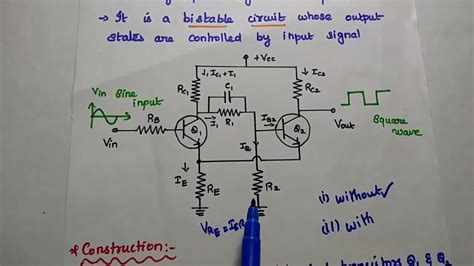 → It is a bistable circuit whose output
states are controlled by input signal
+Vcc
↓ IC1+I1
↓ IC2
RC1
C1
RC2
Vin sine
input
I1 R1
RB
Q1
IB2
Q2
Vout
Square
wave
Vin
IE ↓
IE
RE
R2
VRE = IERE
i) without
ii) with
* Construction:-
transistors Q1 & Q2